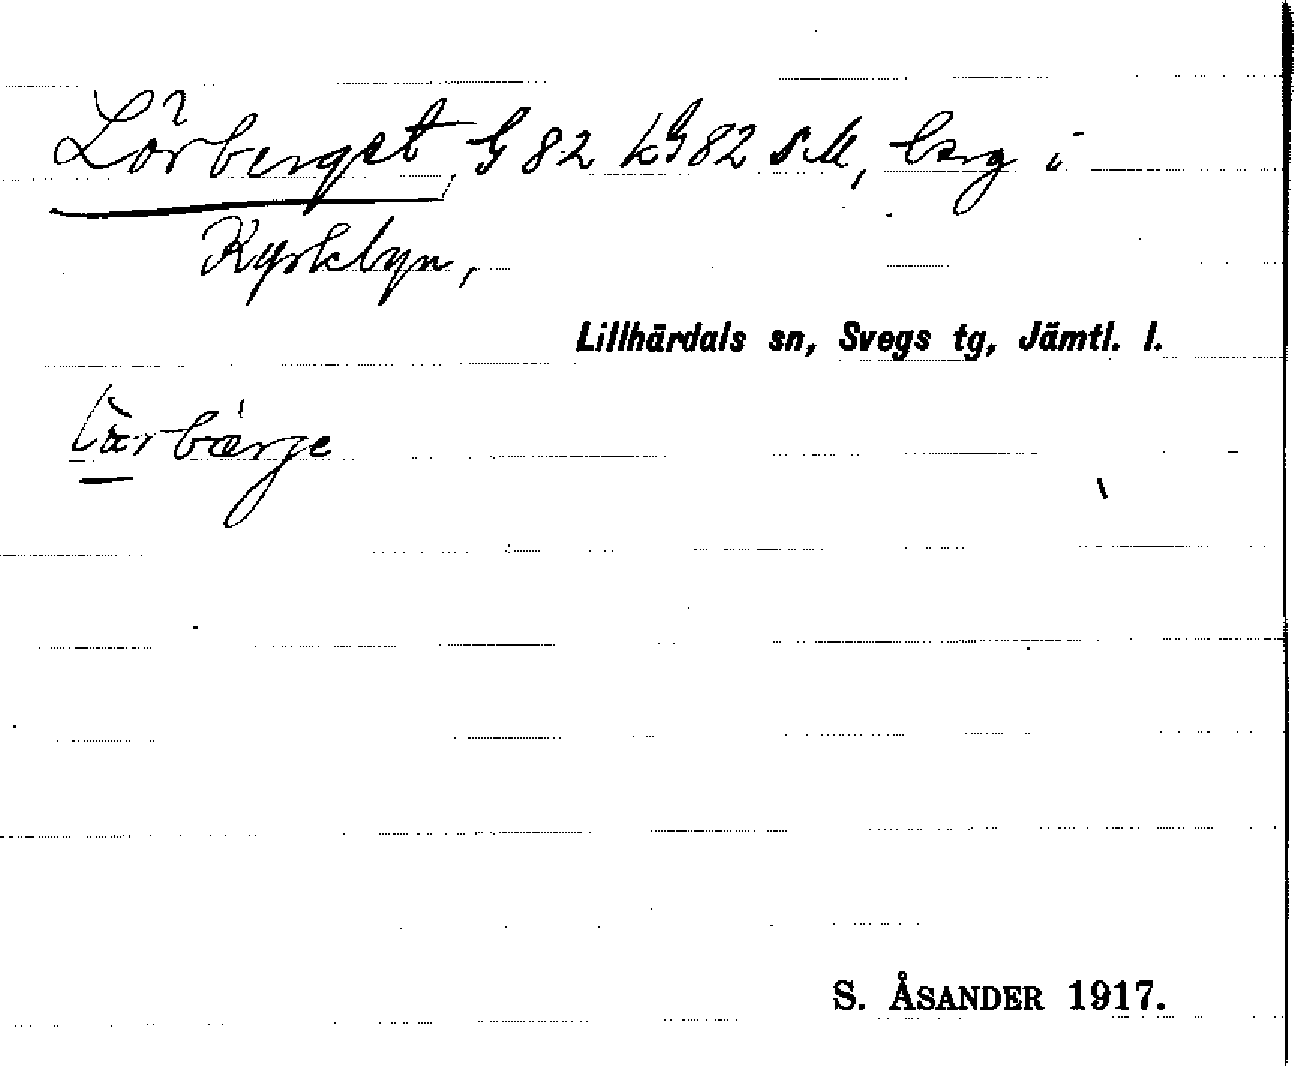 Lörberget, G 82 kG 82 s.M, berg i
Kyrkbyn,
Lillhärdals sn, Svegs tg, Jämtl. l.
lär bärje
S. ÅSANDER 1917.